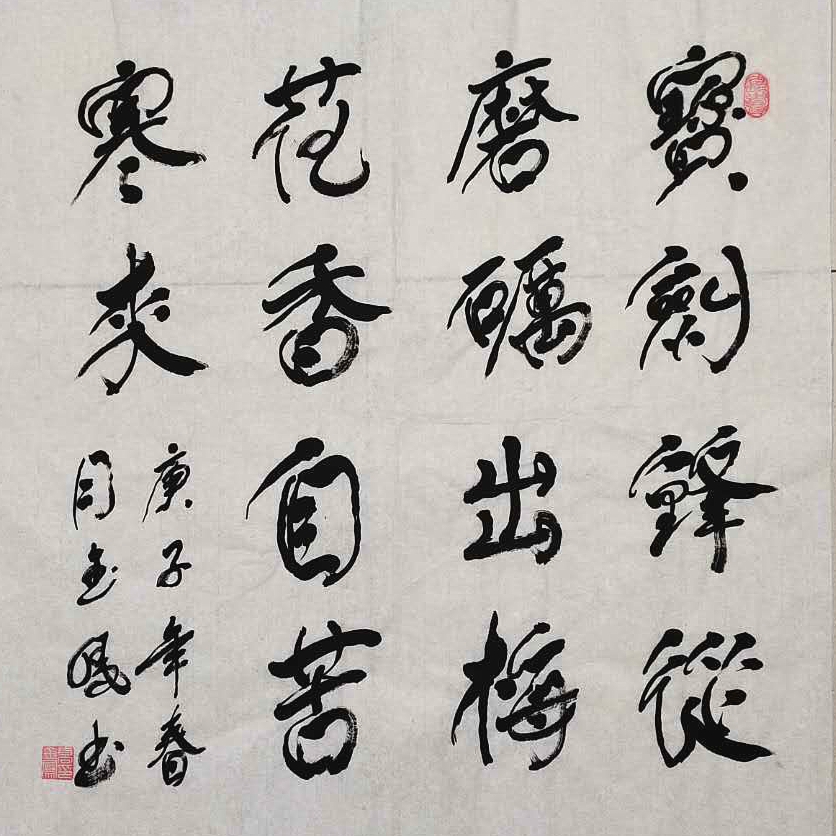 寶劍鋒從
磨礪出梅
花香自苦
寒来
庚子年春
周金鳳书